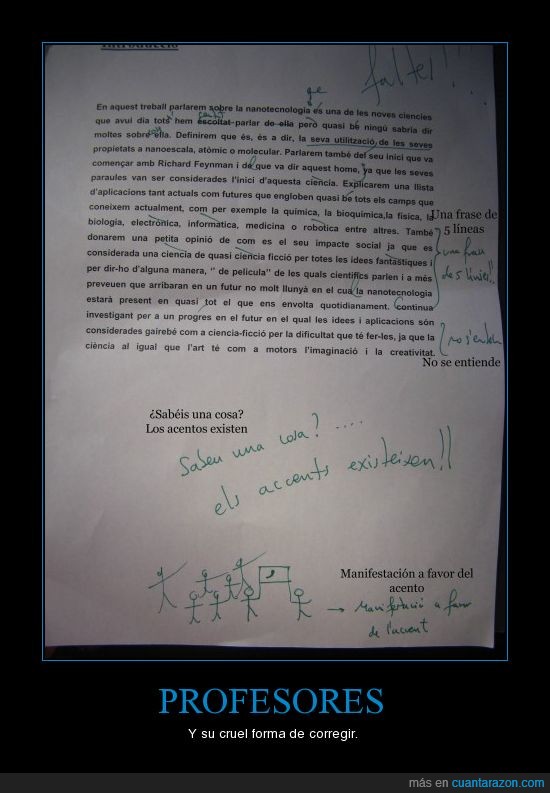 Introducció
faltes!!!
que
En aquest treball parlarem sobre la nanotecnologia és una de les noves ciencies
que avui dia tots hem escoltat parlar de ella però quasi bé ningú sabria dir
moltes sobre ella. Definirem que és, és a dir, la seva utilització de les seves
propietats a nanoescala, atòmic o molecular. Parlarem també del seu inici que va
començar amb Richard Feynman i de que va dir aquest home, ya que les seves
paraules van ser considerades l'inici d'aquesta ciència. Explicarem una llista
d'aplicacions tant actuals com futures que engloben quasi bé tots els camps que
coneixem actualment, com per exemple la química, la bioquímica,la física, la
biologia, electrònica, informatica, medicina o robotica entre altres. També
donarem una petita opinió de com es el seu impacte social ja que es
considerada una ciencia de quasi ciència ficció per totes les idees fantàstiques i
per dir-ho d'alguna manera, " de pelicula" de les quals cientifics parlen i a més
preveuen que arribaran en un futur no molt llunyà en el cual la nanotecnologia
estarà present en quasi tot el que ens envolta quotidianament. Continua
investigant per a un progres en el futur en el qual les idees i aplicacions són
considerades gairebé com a ciencia-ficció per la dificultat que té fer-les, ja que la
ciència al igual que l'art té com a motors l'imaginació i la creativitat.
Una frase de
5 líneas
una frase
de 5 línies!!
no s'entén
No se entiende
¿Sabéis una cosa?
Los acentos existen
Sabeu una cosa? ....
els accents existeixen!!
Manifestación a favor del
acento
→ Manifestació a favor
de l'accent
PROFESORES
Y su cruel forma de corregir.
más en cuantarazon.com